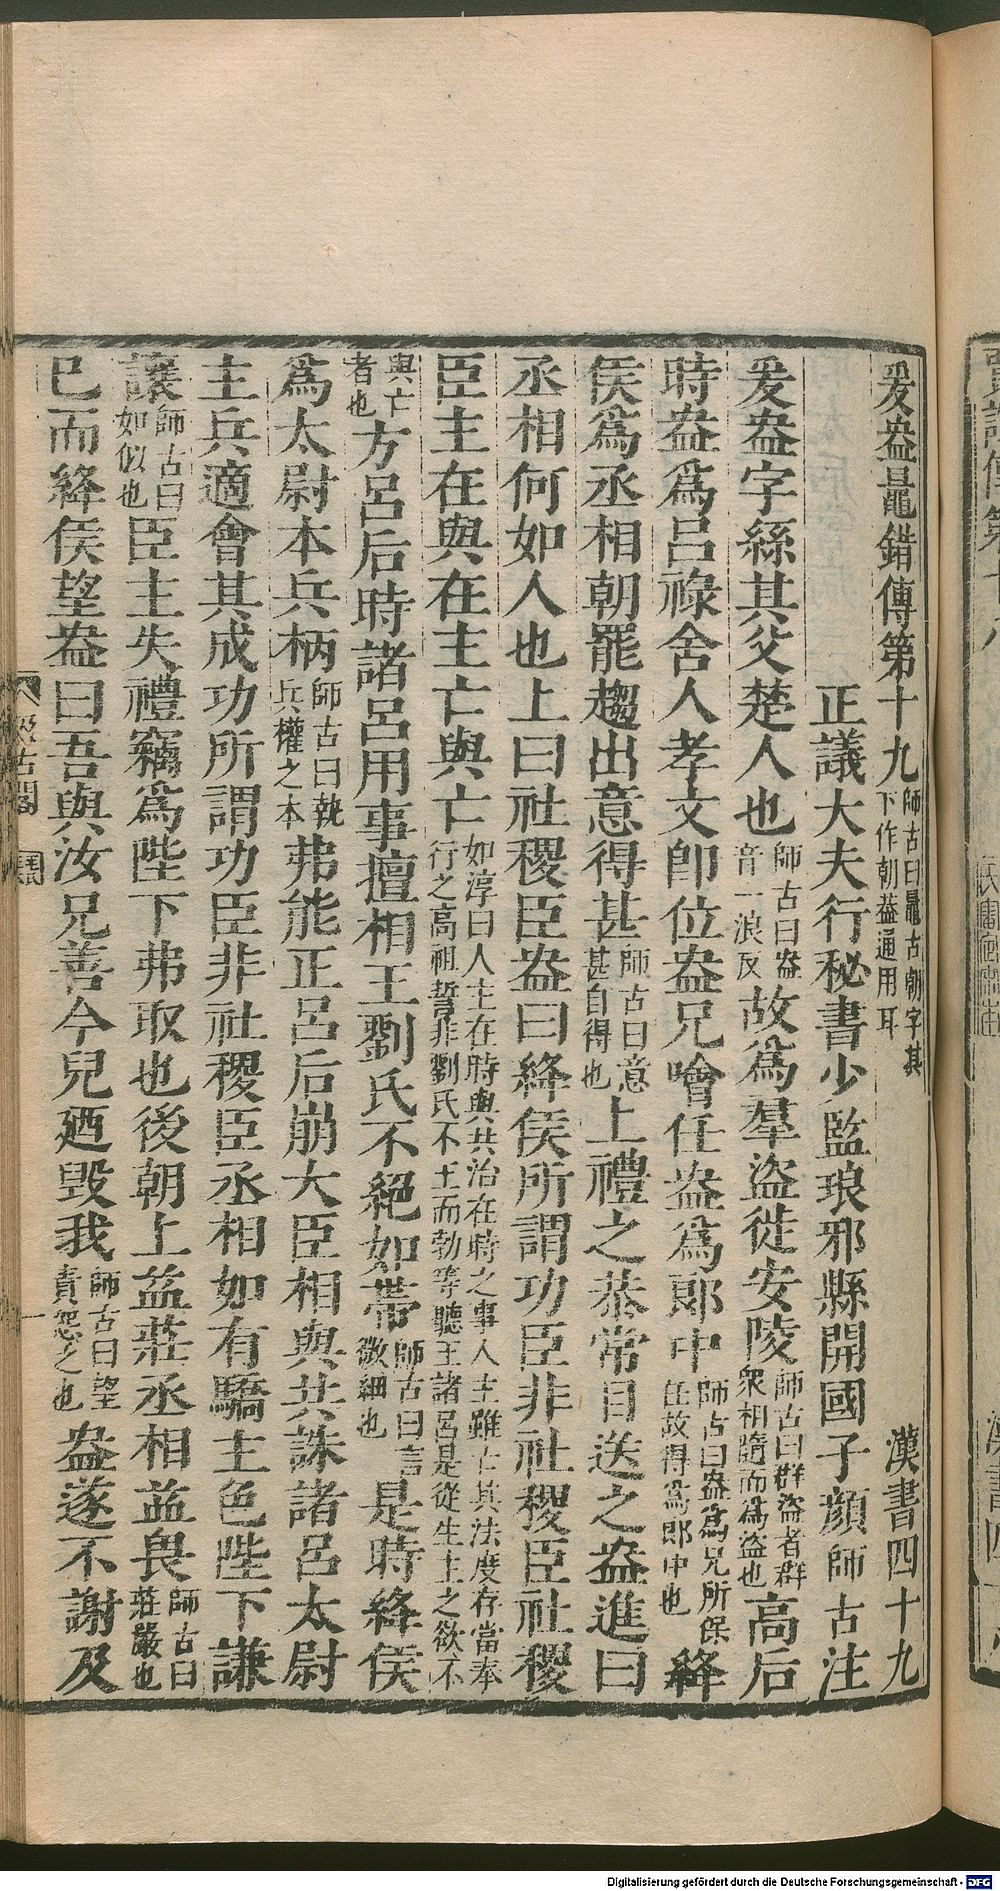 爰盎鼂錯傳第十九 師古曰鼂古朝字其下作朝蓋通用耳 漢書四十九
正議大夫行秘書少監琅邪縣開國子顏師古注
爰盎字絲其父楚人也 師古曰盎音一浪反 故爲羣盜徙安陵 師古曰群盜者群衆相隨而爲盜也 高后
時盎爲呂祿舍人孝文卽位盎兄噲任盎爲郎中 師古曰盎爲兄所保任故得爲郎中也 絳
侯爲丞相朝罷趨出意得甚 師古曰意甚自得也 上禮之恭常目送之盎進曰
丞相何如人也上曰社稷臣盎曰絳侯所謂功臣非社稷臣社稷
臣主在與在主亡與亡 如淳曰人主在時與共治在時之事人主雖亡其法度存當奉行之高祖誓非劉氏不王而勃等聽王諸呂是從生主之欲不
與亡者也 方呂后時諸呂用事擅相王劉氏不絕如帶 師古曰言微細也 是時絳侯
爲太尉本兵柄 師古曰執兵權之本 弗能正呂后崩大臣相與共誅諸呂太尉
主兵適會其成功所謂功臣非社稷臣丞相如有驕主色陛下謙
讓 師古曰如似也 臣主失禮竊爲陛下弗取也後朝上益莊丞相益畏 師古曰莊嚴也
已而絳侯望盎曰吾與汝兄善今兒廼毀我 師古曰望責怨之也 盎遂不謝及
汲古閣
一
Digitalisierung gefördert durch die Deutsche Forschungsgemeinschaft - DFG